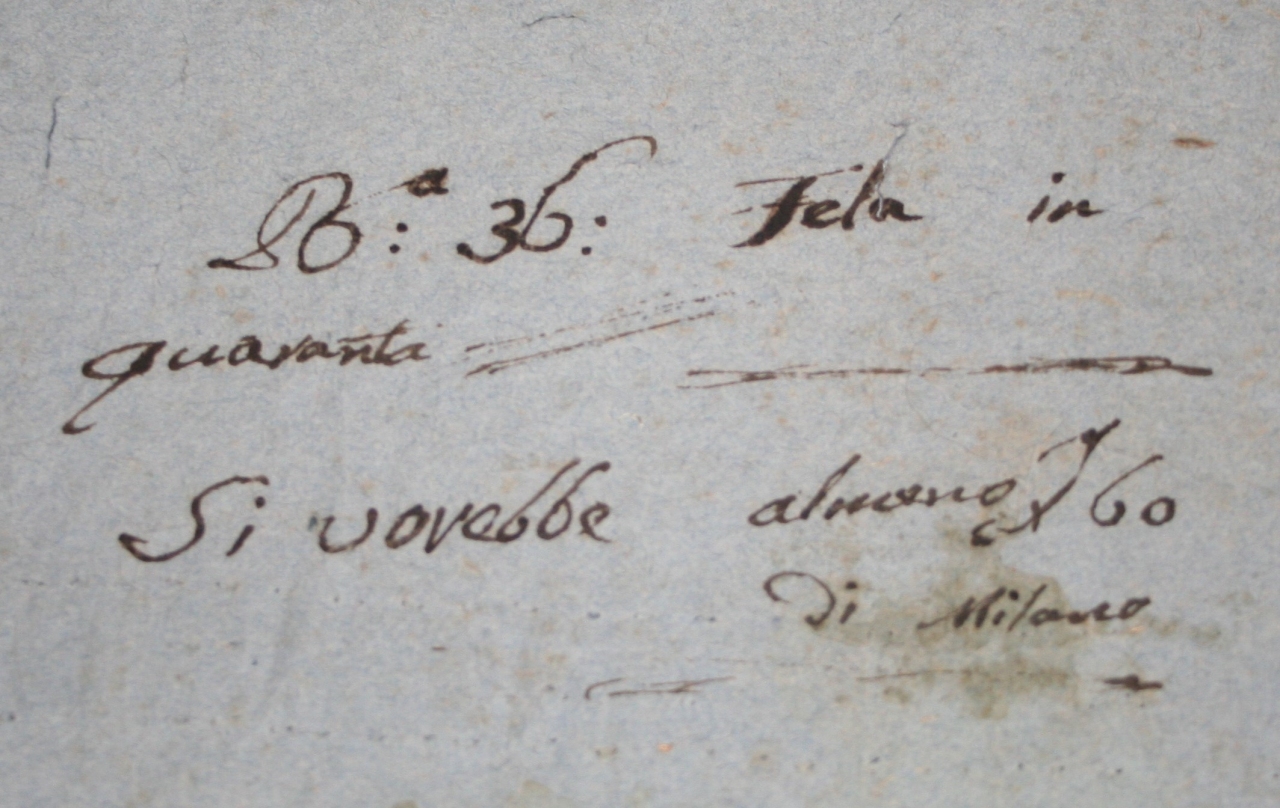 Bª: 36: Tela in
quaranta
Si vorebbe almeno £ 60
Di Milano